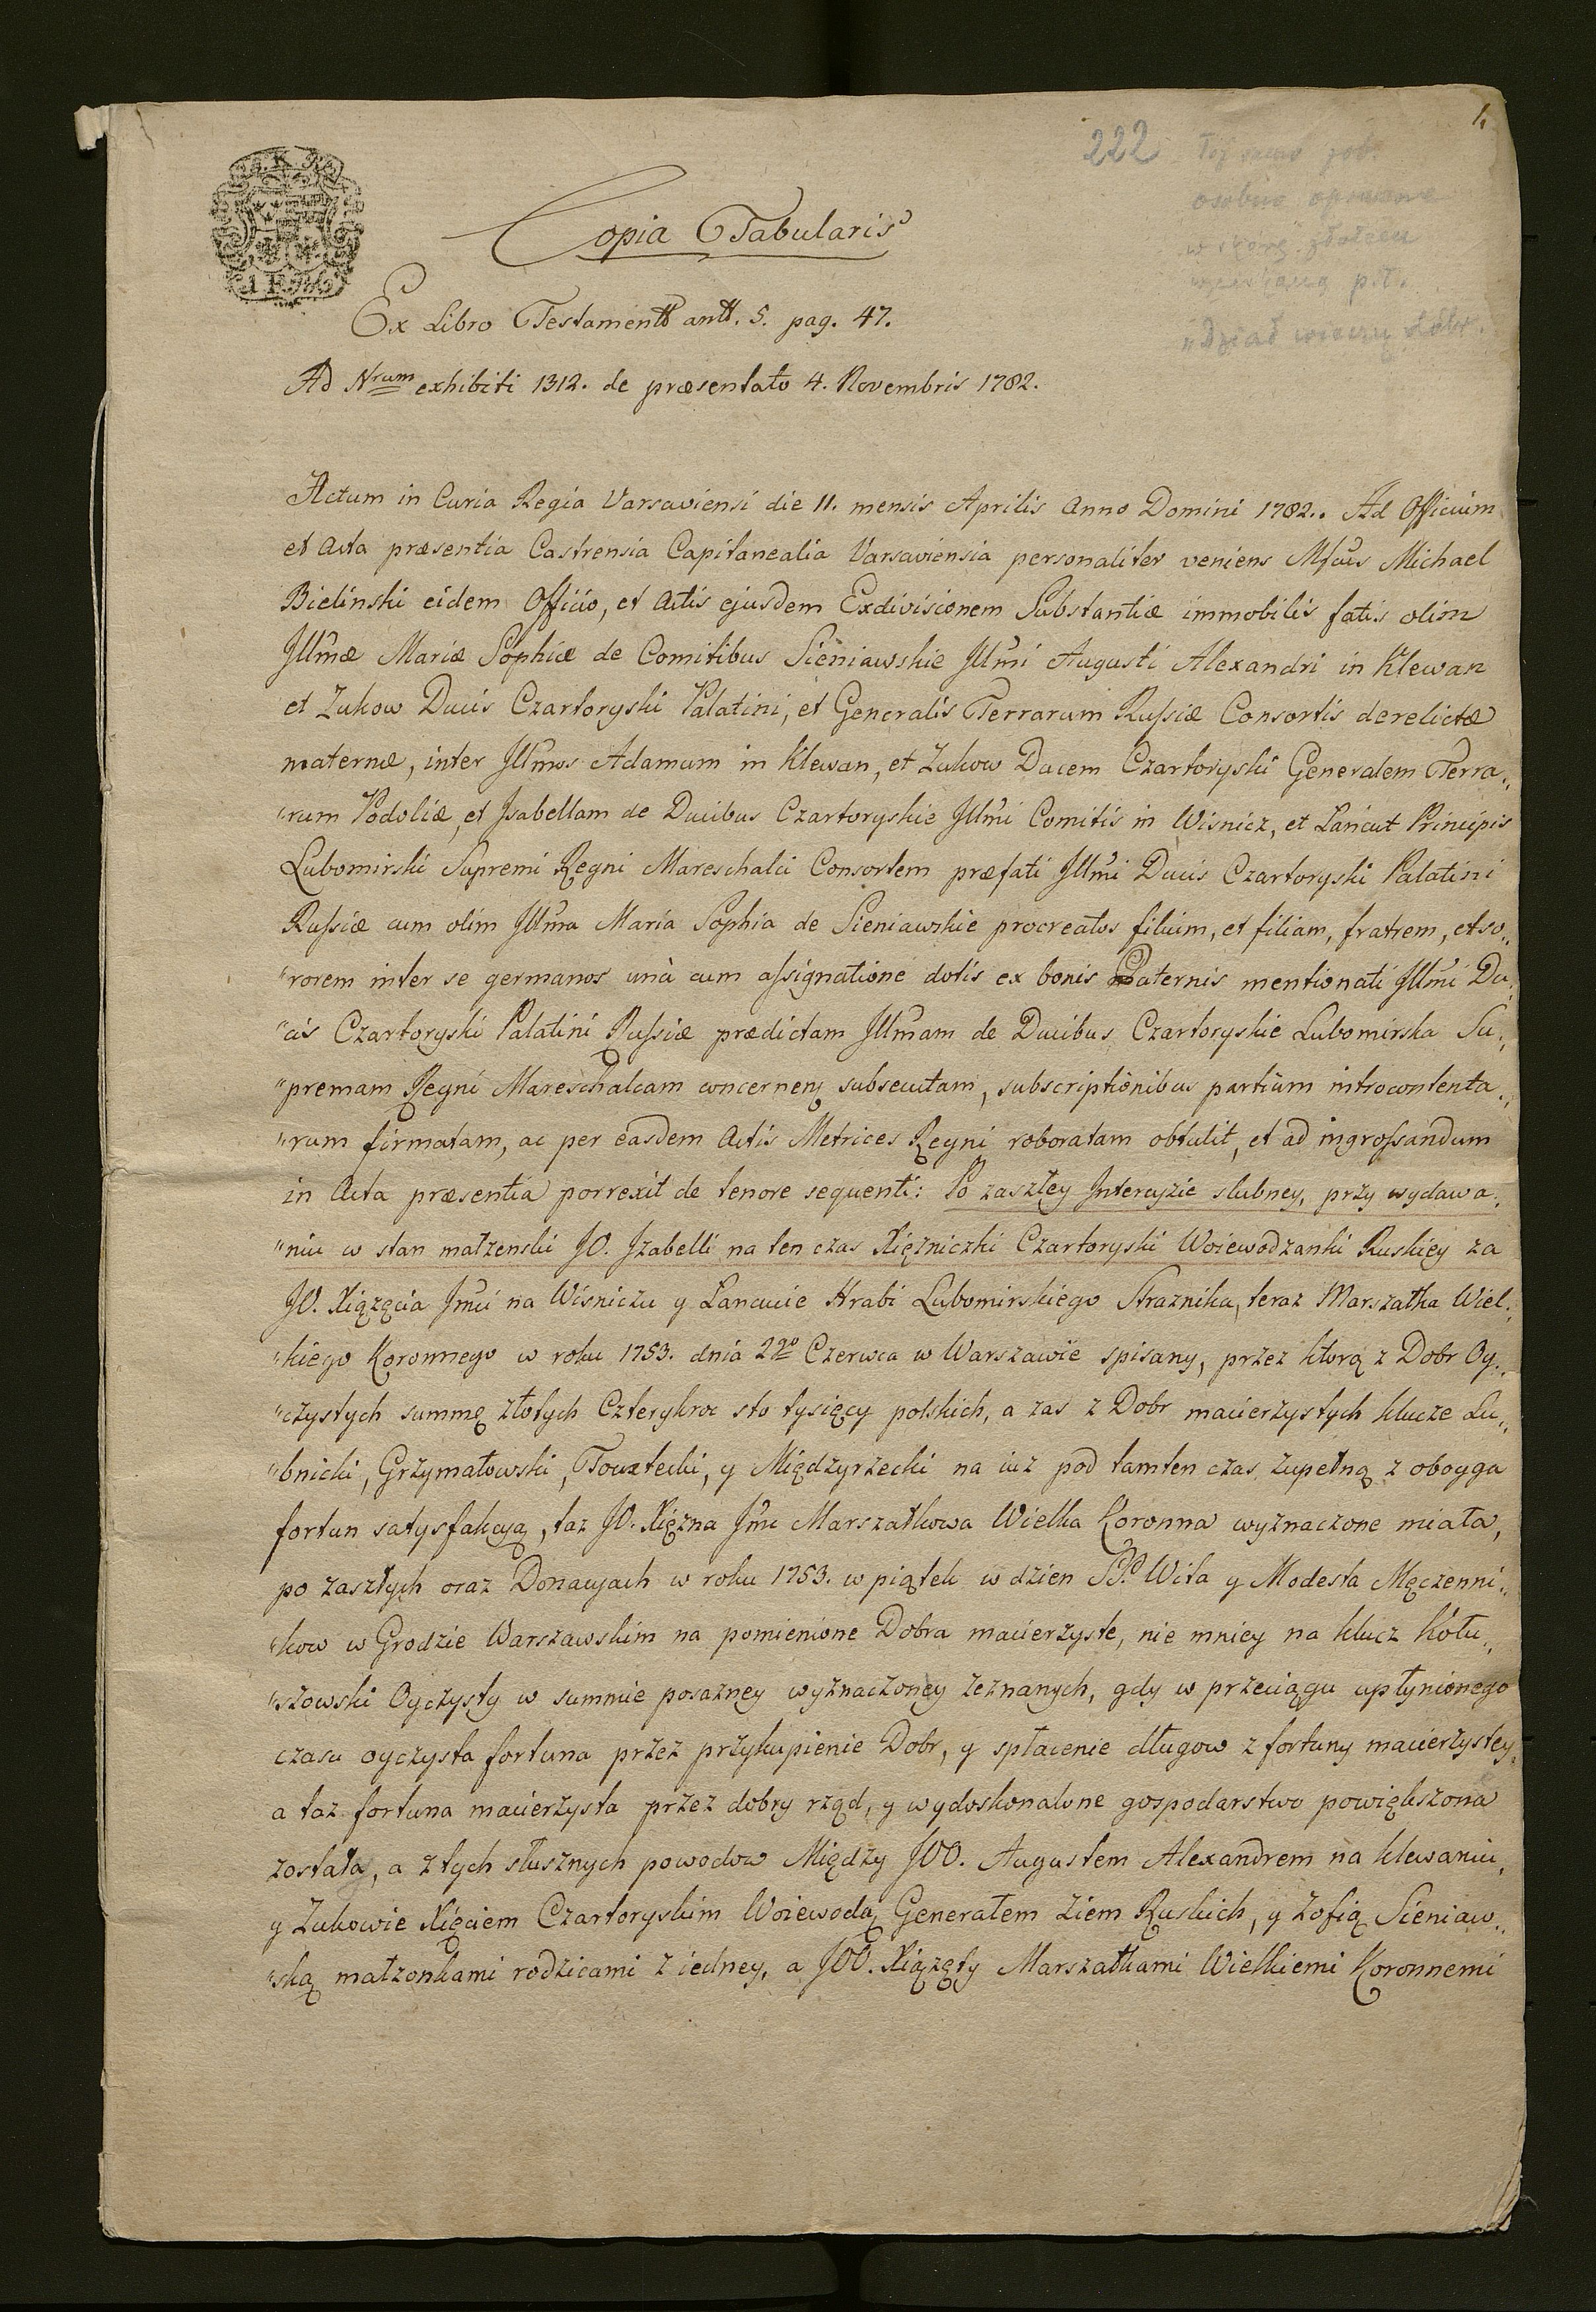 1.
222 Toż samo zob.
osobno oprawne
w skórę złotem
wyciskaną p.t.
"Dział wieczny dóbr.
Copia Tabularis
Ex Libro Testamentt antt. 5. pag. 47.
Ad Nrum exhibiti 1312. de præsentato 4. Novembris 1782.
Actum in Curia Regia Varsaviensi die 11. mensis Aprilis Anno Domini 1782.. Ad Officium
et Acta præsentia Castrensia Capitanealia Varsaviensia personaliter veniens Mfcus Michael
Bielinski eidem Officio, et Actis ejusdem Exdivisionem Substantiæ immobilis fatis olim
Jllmæ Mariæ Sophiæ de Comitibus Sieniawskie Jllmi Augusti Alexandri in Klewan
et Zukow Ducis Czartoryski Palatini, et Generalis Terrarum Russiæ Consortis derelictæ
maternæ, inter Jllmos Adamum in Klewan, et Zukow Ducem Czartoryski Generalem Terra„
"rum Podoliæ, et Jsabellam de Ducibus Czartoryskie Jllmi Comitis in Wisnicz, et Lancut Principis
Lubomirski Supremi Regni Mareschalci Consortem præfati Jllmi Ducis Czartoryski Palatini
Russiæ cum olim Jllma Maria Sophia de Sieniawskie procreatos filium, et filiam, fratrem, et so„
"rorem inter se germanos unà cum assignatione dotis ex bonis Paternis mentionati Jllmi Du„
"cis Czartoryski Palatini Russiæ prædictam Jllmam de Ducibus Czartoryskie Lubomirska Su„
"premam Regni Mareschalcam concernens subsecutam, subscriptionibus partium introcontenta„
"rum firmatam, ac per easdem Actis Metrices Regni roboratam obtulit, et ad ingrossandum
in Acta præsentia porrexit de tenore sequenti: Po zaszłey Intercyzie slubney, przy wydawa„
"niu w stan małzenski JO. Jzabelli na ten czas Xięzniczki Czartoryski Woiewodzanki Ruskiey za
JO. Xiązęcia Jmci na Wisniczu y Lancucie Hrabi Lubomirskiego Straznika, teraz Marszałka Wiel„
"kiego Koronnego w roku 1753. dnia 22go Czerwca w Warszawie spisany, przez ktorą z Dobr Oy„
"czystych summę złotych Czterykroc sto tysięcy polskich, a zas z Dobr macierzystych klucze Lu„
"bnicki, Grzymałowski, Touxtecki, y Międzyrzecki na iuz pod tamten czas zupełną z oboyga
fortun satysfakcyą, taz JO. Xięzna Jmc Marszałkowa Wielka Koronna wyznaczone miała,
po zaszłych oraz Donacyach w roku 1753. w piątek w dzien SS. Wita y Modesta Męczenni„
"kow w Grodzie Warszawskim na pomienione Dobra macierzyste, nie mniey na klucz Kołu„
"szowski Oyczysty w summie posazney wyznaczoney zeznanych, gdy w przeciągu upłynionego
czasu oyczysta fortuna przez przykupienie Dobr, y spłacenie długow z fortuny macierzystey,
a taz fortuna macierzysta przez dobry rząd, y wydoskonalone gospodarstwo powiększona
została, a z tych słusznych powodow Między JOO. Augustem Alexandrem na Klewaniu,
y Zukowie Xięciem Czartoryskim Woiewodą Generałem Ziem Ruskich, y Zofią Sieniaw„
"ską małzonkami rodzicami z iedney, a JOO. Xiązęty Marszałkami Wielkiemi Koronnemi